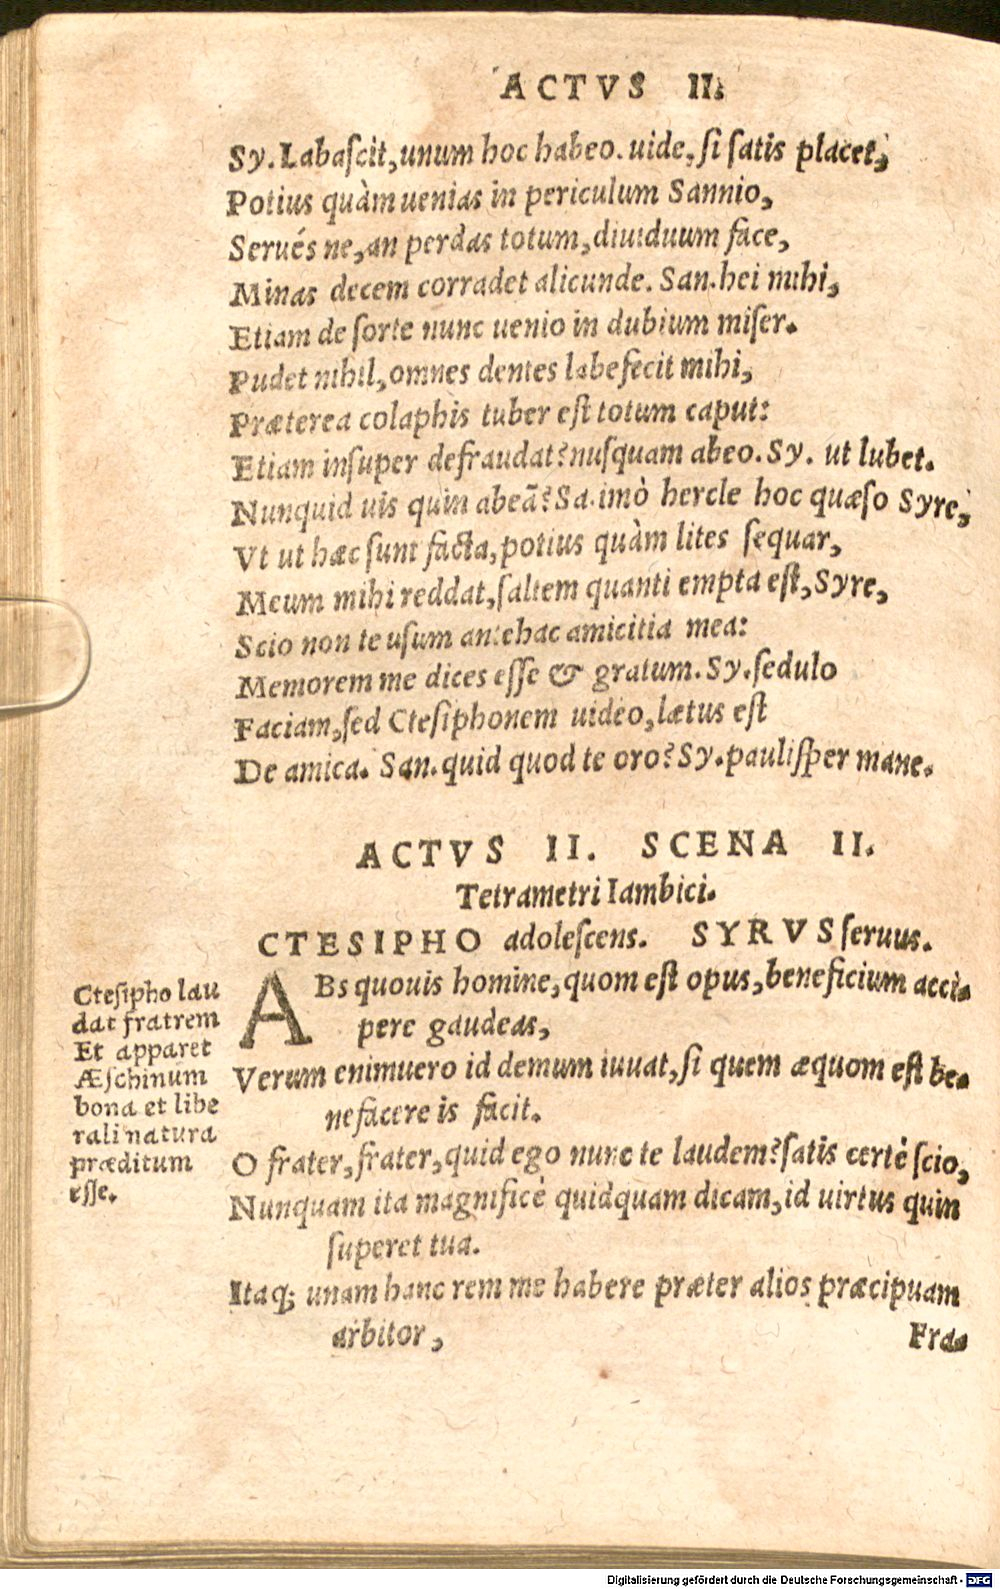 ACTVS II.
Sy. Labaſcit, unum hoc habeo. uide, ſi ſatis placet,
Potius quàm uenias in periculum Sannio,
Serués ne, an perdas totum, diuiduum face,
Minas decem corradet alicunde. San. hei mihi,
Etiam de ſorte nunc uenio in dubium miſer.
Pudet nihil, omnes dentes labefecit mihi,
Præterea colaphis tuber eſt totum caput:
Etiam inſuper defraudat? nuſquam abeo. Sy. ut lubet.
Nunquid uis quin abeã? Sa. imò hercle hoc quæſo Syre,
Vt ut hæc ſunt facta, potius quàm lites ſequar,
Meum mihi reddat, ſaltem quanti empta eſt, Syre,
Scio non te uſum antehac amicitia mea:
Memorem me dices eſſe & gratum. Sy. ſedulo
Faciam, ſed Cteſiphonem uideo, lætus eſt
De amica. San. quid quod te oro? Sy. pauliſper mane.
ACTVS II. SCENA II.
Tetrametri Iambici.
CTESIPHO adoleſcens. SYRVS ſeruus.
ABs quouis homine, quom eſt opus, beneficium acci-
pere gaudeas,
Verum enimuero id demum iuuat, ſi quem æquom eſt be-
nefacere is facit.
O frater, frater, quid ego nunc te laudem? ſatis certè ſcio,
Nunquam ita magnificè quidquam dicam, id uirtus quin
ſuperet tua.
Itaq; unam hanc rem me habere præter alios præcipuam
arbitor,
Fra-
Cteſipho lau
dat fratrem
Et apparet
Æſchinum
bona et libe
rali natura
præditum
eſſe.
Digitalisierung gefördert durch die Deutsche Forschungsgemeinschaft - DFG